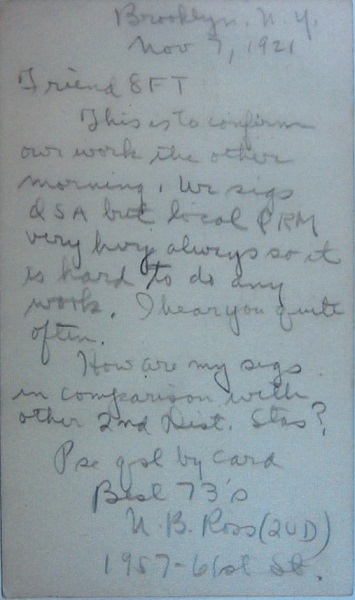 Brooklyn. N.Y.
Nov 7, 1921
Friend 8FT
This is to confirm
our work the other
morning. Ur sigs
QSA but local QRM
very hvy always so it
is hard to do any
work. I hear you quite
often.
How are my sigs
in comparison with
other 2nd Dist. Stas?
Pse qsl by card
Best 73's
N. B. Ross (2UD)
1957-61st St.